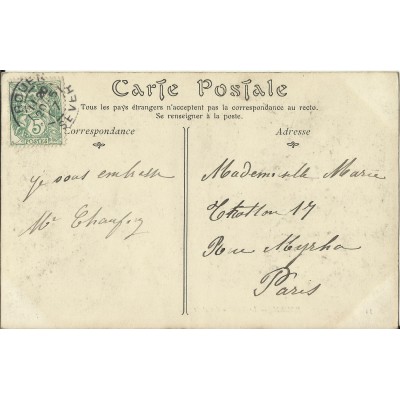 ROUEN
5
POSTES
Carte Postale
Tous les pays étrangers n'acceptent pas la correspondance au recto.
Se renseigner à la poste.
Correspondance
Adresse
Je vous embrasse
Mademoiselle Marie
17
Rue Myrha
Paris